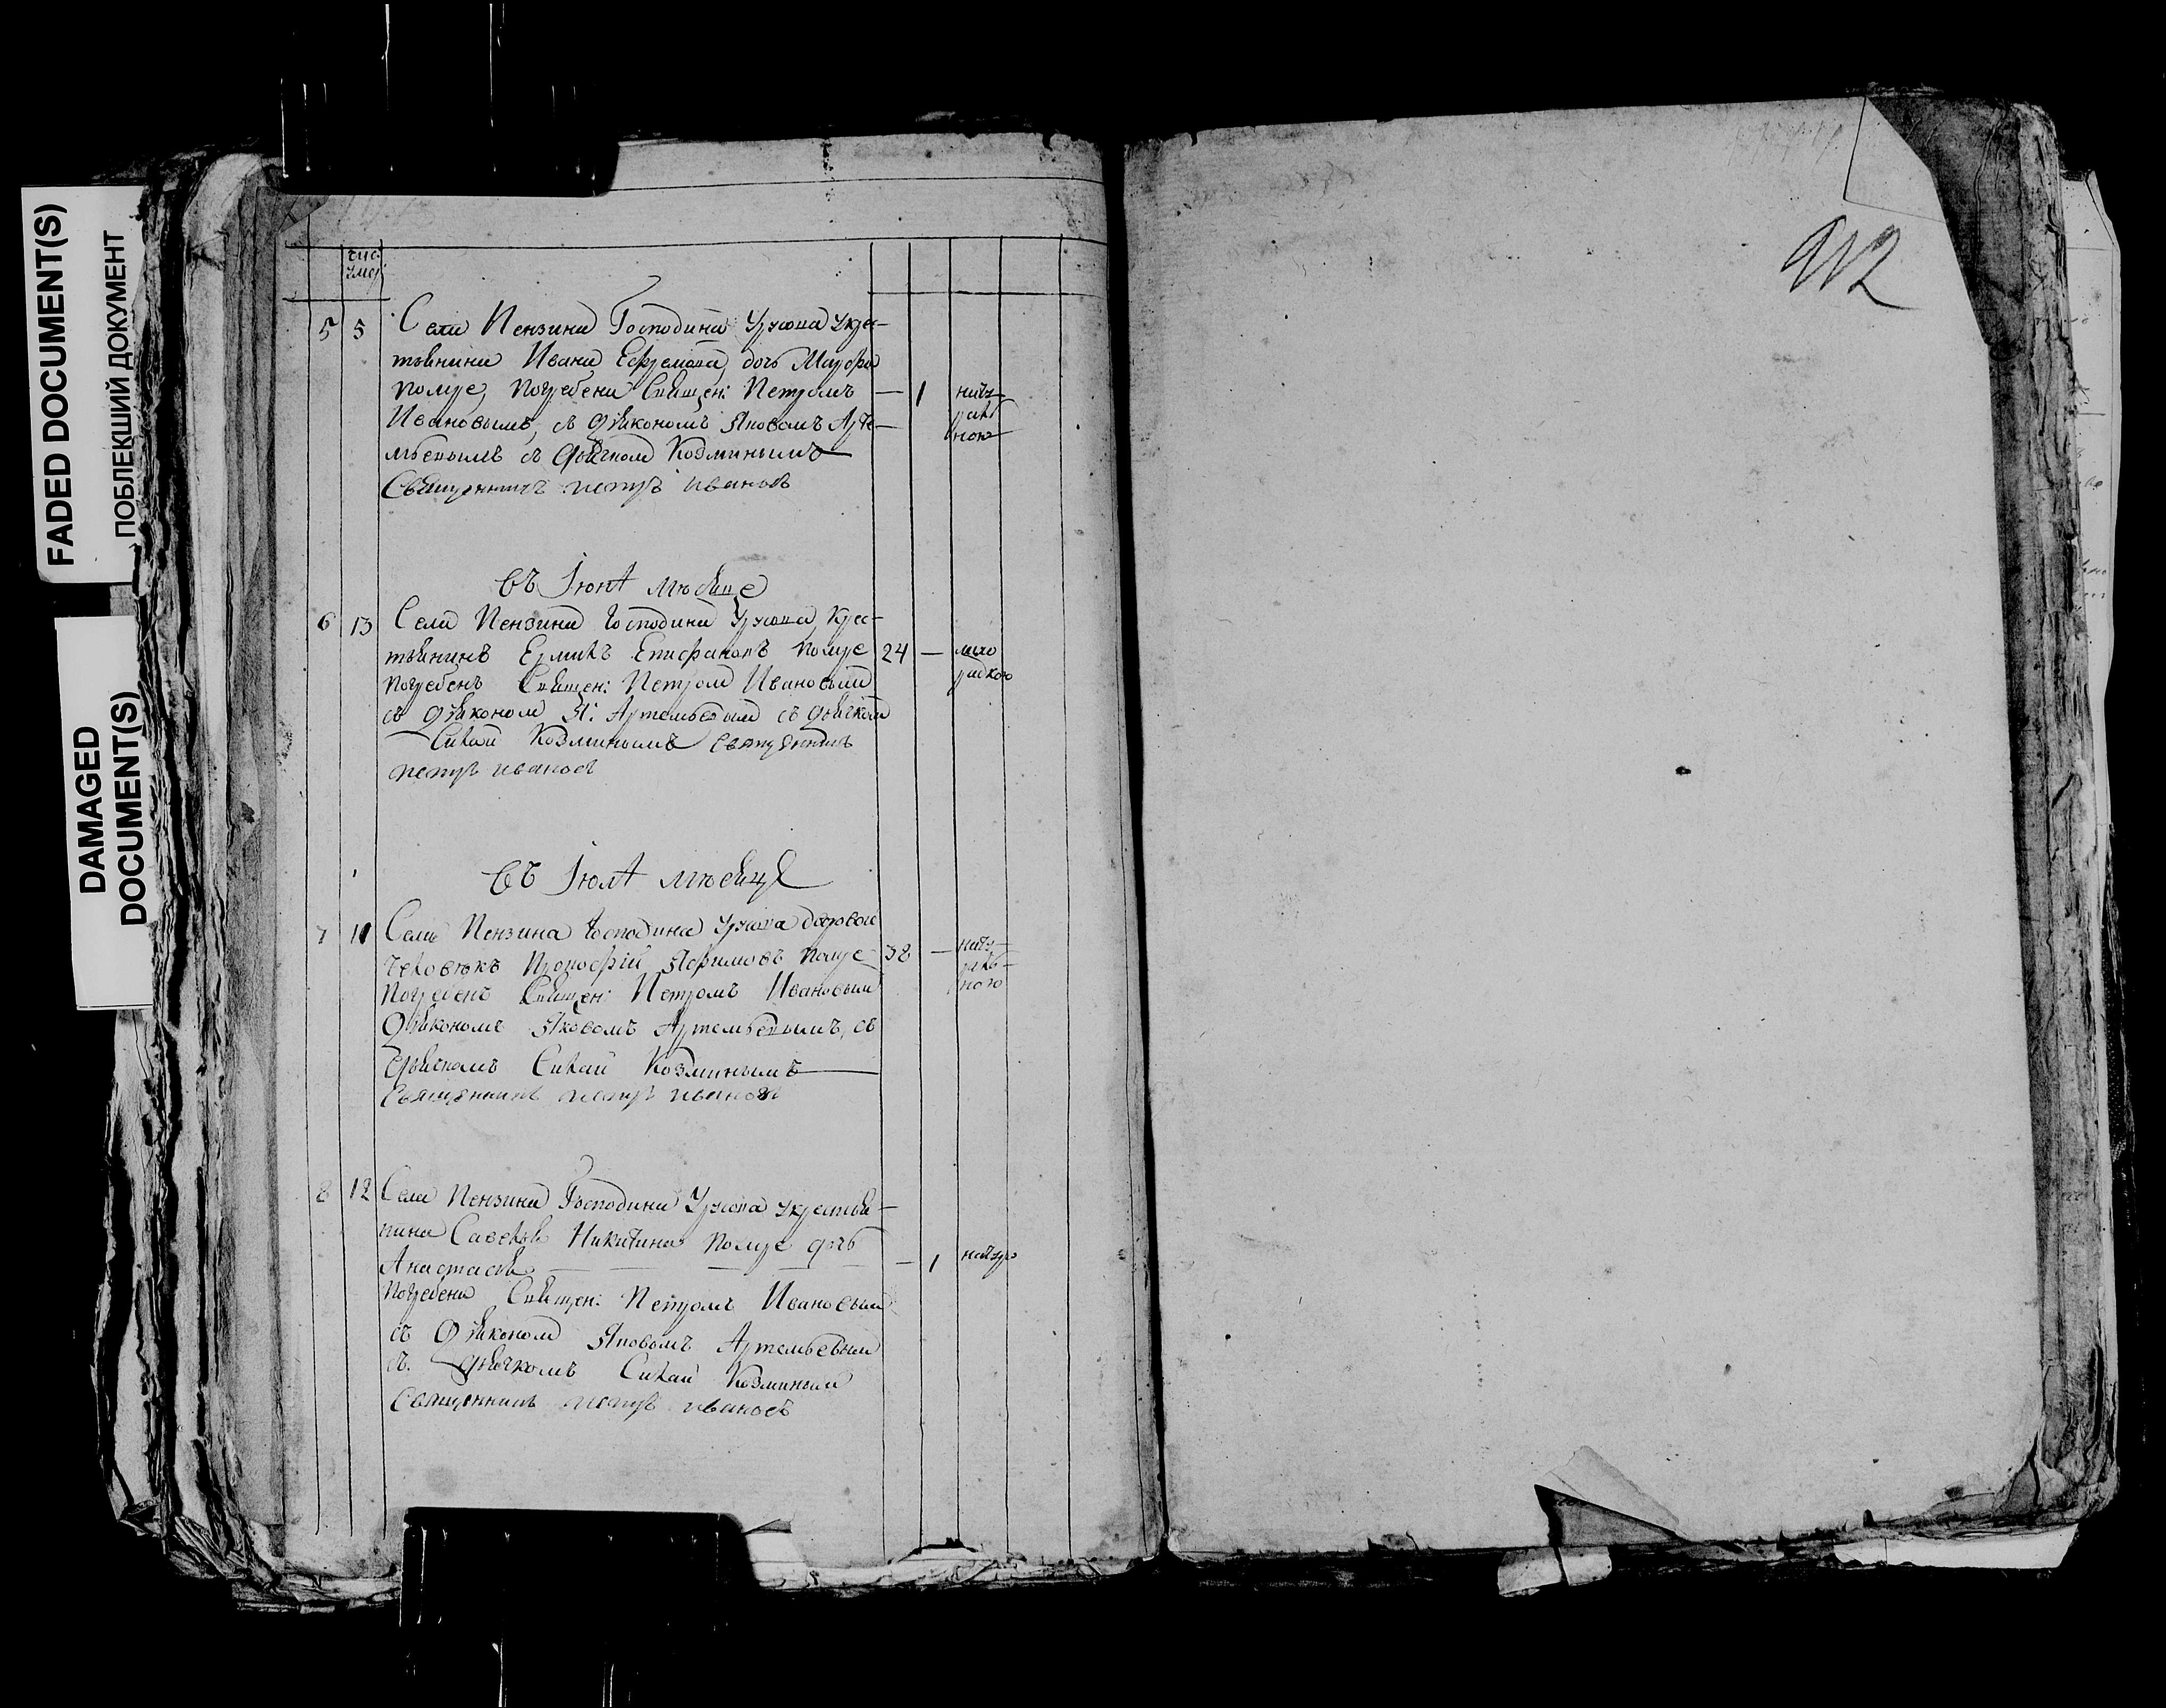 FADED DOCUMENT(S)
ПОБЛЕКШИЙ ДОКУМЕНТ
DAMAGED
DOCUMENT(S)
912
5 5 Села Пензина Господина укре-
тьянина Ивана Ефремова дочь
помре, погребена Священ: Петромъ — 1 нату
Ивановымъ, съ діякономъ Яковомъ Арте- раль
мьевымъ съ дьячкомъ Козминымъ ною
Священникъ петръ ивановъ
въ Iюнѣ мѣсяце
6 13 Села Пензина господина крес-
тьянинъ Ермилъ Епифановъ помре 24 — лихо
погребенъ Священ: Петром Ивановым радкою
съ діяконом Я: Артемьевым съ дьячком
Силой Козминымъ священникъ
петръ ивановъ
въ Iюлѣ мѣсяцѣ
7 11 Села Пензина господина дворовой
человѣкъ Прокофій помре 38 — нату
погребенъ Священ: Петромъ Ивановым раль
Діякономъ Яковомъ Артемьевымъ, съ ного
дьячкомъ Силой Козминымъ
Священникъ петръ ивановъ
8 12 Села Пензина Господина укрестья-
нина Никитина помре дочь
Анастасья — 1 натур
погребена Священ: Петромъ Ивановым
съ Діяконом Яковомъ Артемьевым
съ дьячкомъ Силой Козминым
Священникъ петръ ивановъ